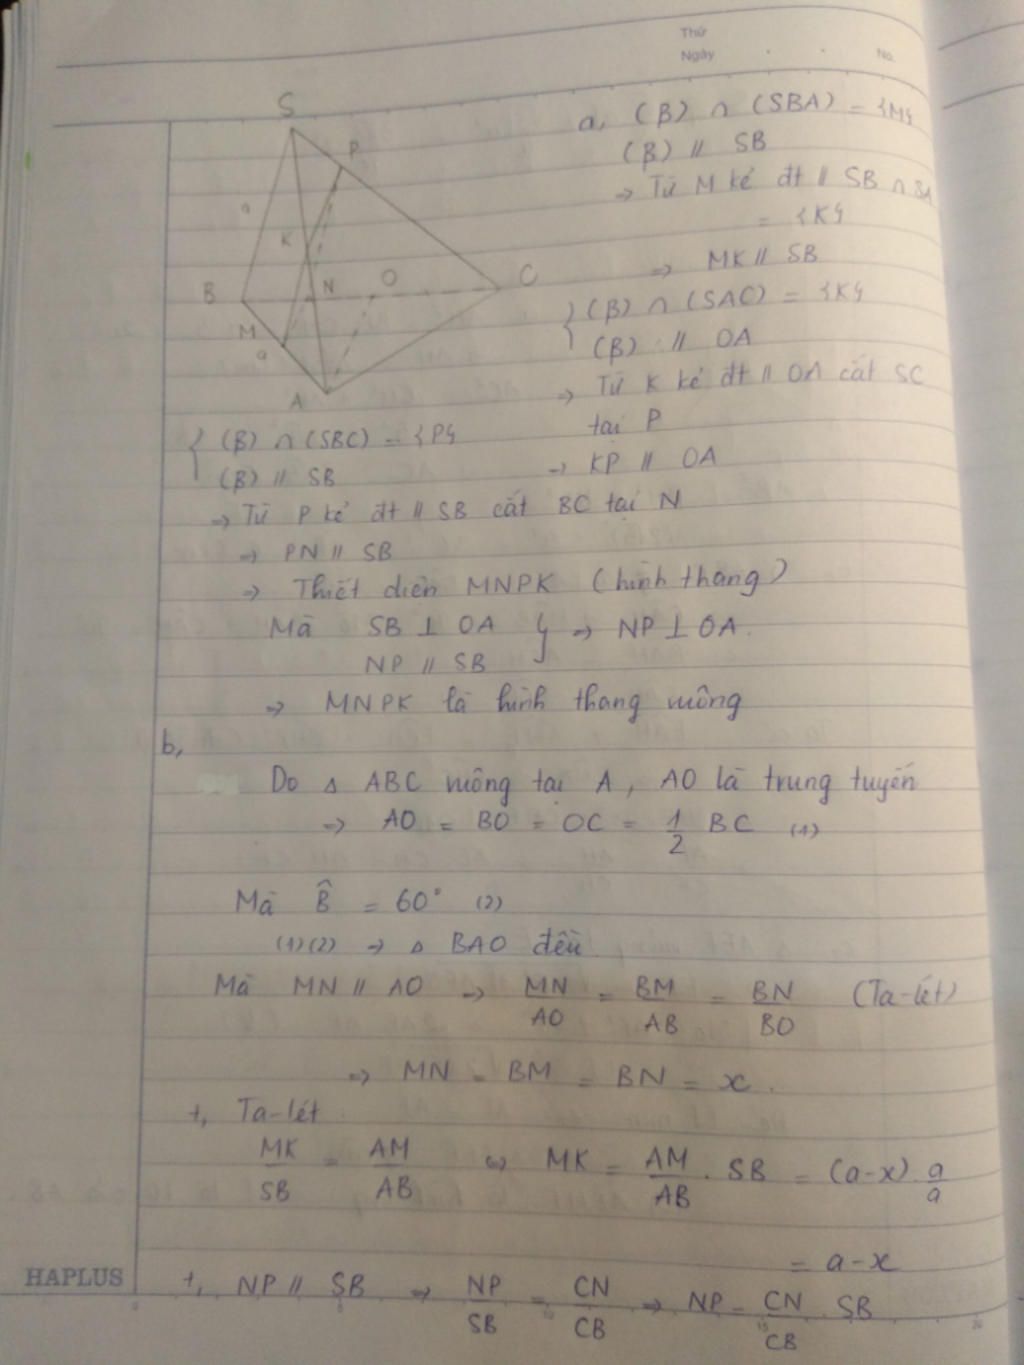 Thứ
Ngày
No.
S
P
a
K
B
N
O
C
M
a
A
a, (β) ∩ (SBA) = {M}
(β) // SB
→ Từ M kẻ đt // SB ∩ SA
= {K}
⇒ MK // SB
{ (β) ∩ (SAC) = {K}
(β) // OA
⇒ Từ K kẻ đt // OA cắt SC
tại P
→ KP // OA
{ (β) ∩ (SBC) = {P}
(β) // SB
⇒ Từ P kẻ đt // SB cắt BC tại N
⇒ PN // SB
⇒ Thiết diện MNPK (hình thang)
Mà SB ⊥ OA } ⇒ NP ⊥ OA.
NP // SB
⇒ MNPK là hình thang vuông
b,
Do △ ABC vuông tại A, AO là trung tuyến
⇒ AO = BO = OC = 1/2 BC (1)
Mà B̂ = 60° (2)
(1)(2) ⇒ △ BAO đều.
Mà MN // AO ⇒ MN/AO = BM/AB = BN/BO (Ta-lét)
⇒ MN = BM = BN = x.
+, Ta-lét
MK/SB = AM/AB ⇔ MK = AM/AB . SB = (a-x) . a/a
= a-x
+, NP // SB ⇒ NP/SB = CN/CB ⇒ NP = CN/CB . SB
HAPLUS